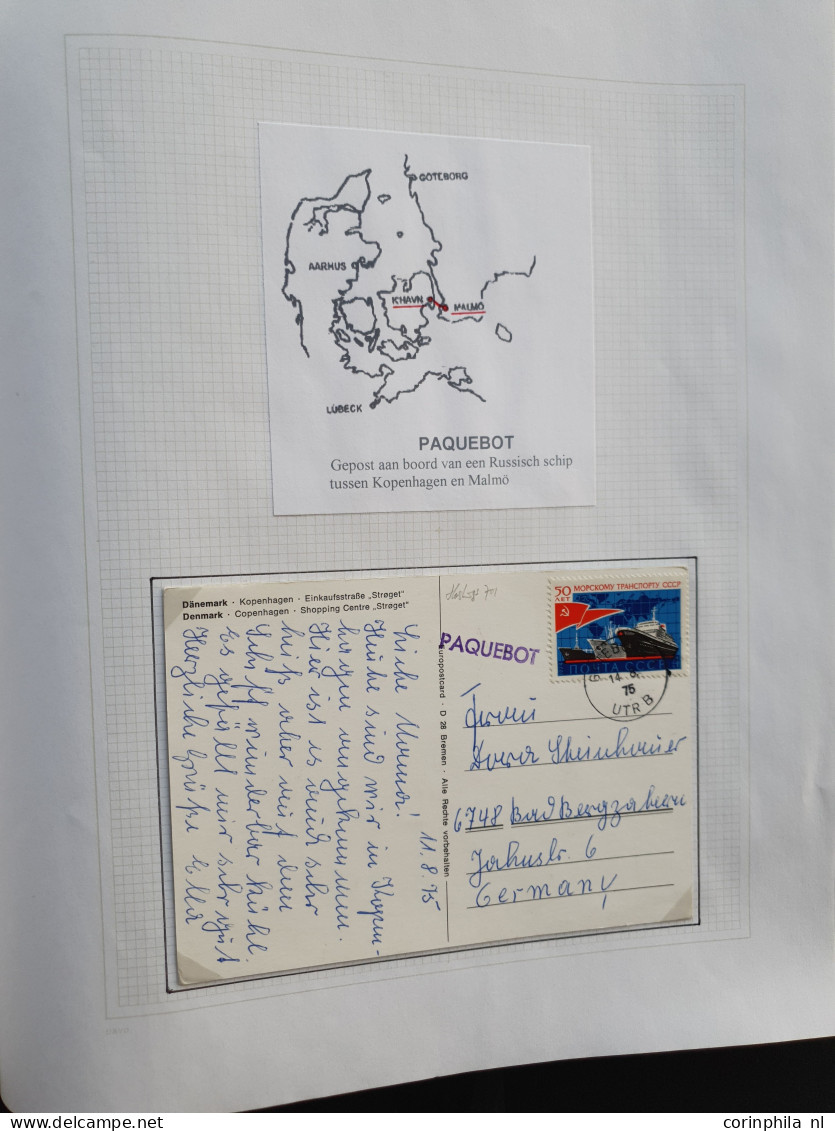 GÖTEBORG
AARHUS
K'HAVN
MALMÖ
LÜBECK
PAQUEBOT
Gepost aan boord van een Russisch schip
tussen Kopenhagen en Malmö
Dänemark · Kopenhagen · Einkaufsstraße „Strøget“
Denmark · Copenhagen · Shopping Centre „Strøget“
11.8.75
Liebe Mama!
Heute sind wir in Kopen-
hagen angekommen.
Hier ist es auch sehr
heiß aber mit dem
Schiff wunderbar kühl.
Es gefällt mir sehr gut
Herzliche Grüße
Europostcard · D 28 Bremen · Alle Rechte vorbehalten
PAQUEBOT
50 ЛЕТ МОРСКОМУ ТРАНСПОРТУ СССР
ПОЧТА СССР
14.8.
75
UTR B
Frau
Dora Steinhauer
6748 Bad Bergzabern
Jahnstr. 6
Germany
corinphila nl